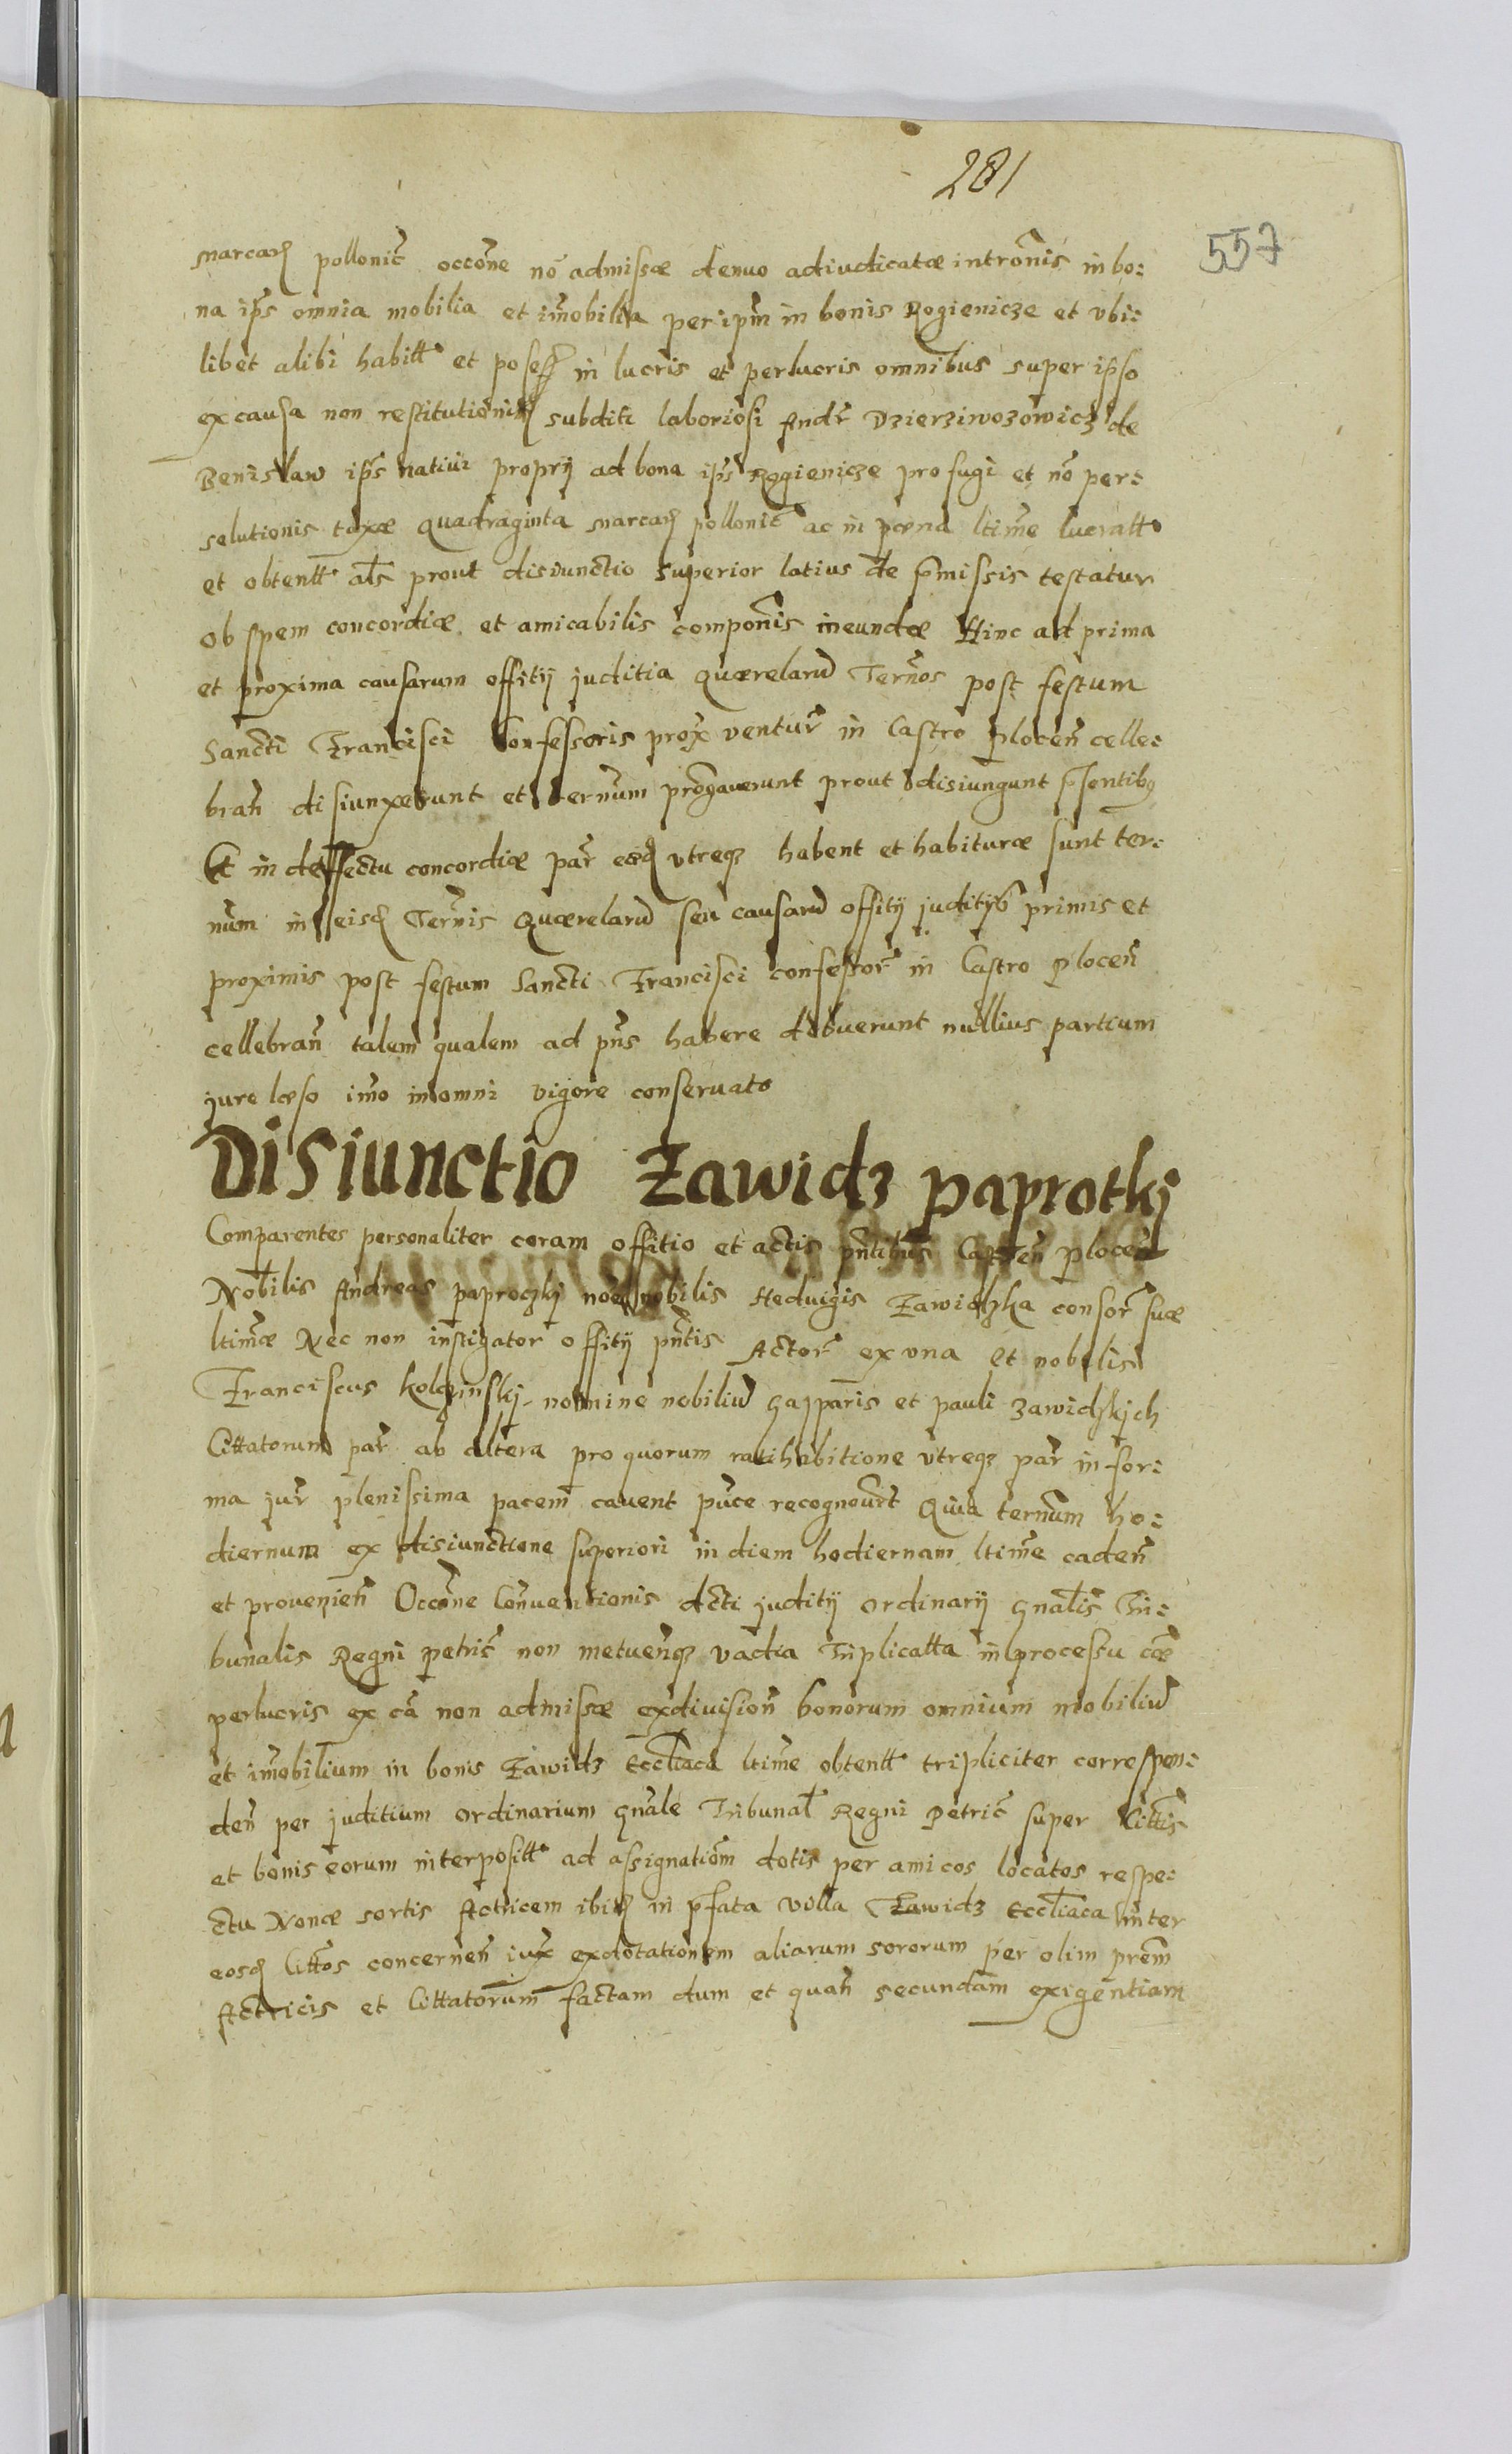 281
557
marcarum pollonic̃ occõne nõ admissæ denuo adiudicatæ intromĩs in bo:
na ip̃s omnia mobilia et im̃obilia per ip̃m in bonis Rogienicze et vbi:
libet alibi habitt et posess in lucris et perlucris omnibus super ipso
ex causa non restitutionis subditi laboriosi Andr̃ Dzierziwozowicz de
Benislaw ip̃s natiui proprij ad bona ip̃s Rogienicze profugi et nõ per:
solutionis taxæ quadraginta marcarum pollonic̃ ac in pœna ltim̃e lucratt
et obtentt al̃s prout disiunctio superior latius de p̃missis testatur
ob spem concordiæ et amicabilis compon̄is ineundæ Hinc ad prima
et proxima causarum offitij juditia quærelarũ Term̃os post festum
Sancti Francisci Confessoris prox̃ ventur̃ in Castro Plocen̄ celle:
bran̄ disiunxerunt et term̃um prõgaverunt prout disiungunt p̃sentibus
Et in deffectu concordiæ par̃ eæd utreqȝ habent et habituræ sunt ter:
num in eisd Term̃is Quærelarũ seu causarũ offitij juditijs primis et
proximis post festum Sancti Francisci confessor̃ in Castro Plocen̄
cellebran̄ talem qualem ad pñs habere debuerunt nullius partium
jure læso im̃o in omni vigore conseruato
Disiunctio Zawidz paprotkj
Comparentes personaliter coram offitio et actis pñtibus Capten̄ Plocen̄
Nobilis Andreas paproczkj noẽ nobilis Heduigis Zawidzka consor̃ suæ
ltimæ Nec non instigator offitij pñtis Actor̃ ex vna Et nobilis
Franciscus Kolczinskj nomine nobiliũ Gasparis et pauli Zawidzkjch
Cittatorum par̃ ab altera pro quorum ratihabitione utreqȝ par̃ in for:
ma jur̃ plenissima pacem cavent pũce recognour̃t Quia term̃um ho:
diernum ex disiunctione superiori in diem hodiernam ltim̃e caden̄
et provenien̄ Occõne Conventionis dcti juditij ordinarij Gnãlis Tri:
bunalis Regni petric̃ non metuen̄qȝ vadia Triplicatta in processu cæ
perlucris ex cã non admissæ exdivision̄ bonorum omnium mobiliũ
et im̃obilium in bonis Zawidz Eccl̃iaca ltim̃e obtentt tripliciter correspon:
den̄ per juditium ordinarium Gnãle Tribunal̃ Regni Petric̃ super Citt̃is
et bonis eorum interpositt ad assignatiõm dotis per amicos locatos respe:
ctu Nonæ sortis Actricem ibid in p̃fata villa Zawidz Eccl̃iaca inter
eosd Citt̃os concernen̄ iux̃ exdotationem aliarum sororum per olim prẽm
Actricis et Cittatorum factam dum et quan̄ secundam exigentiam